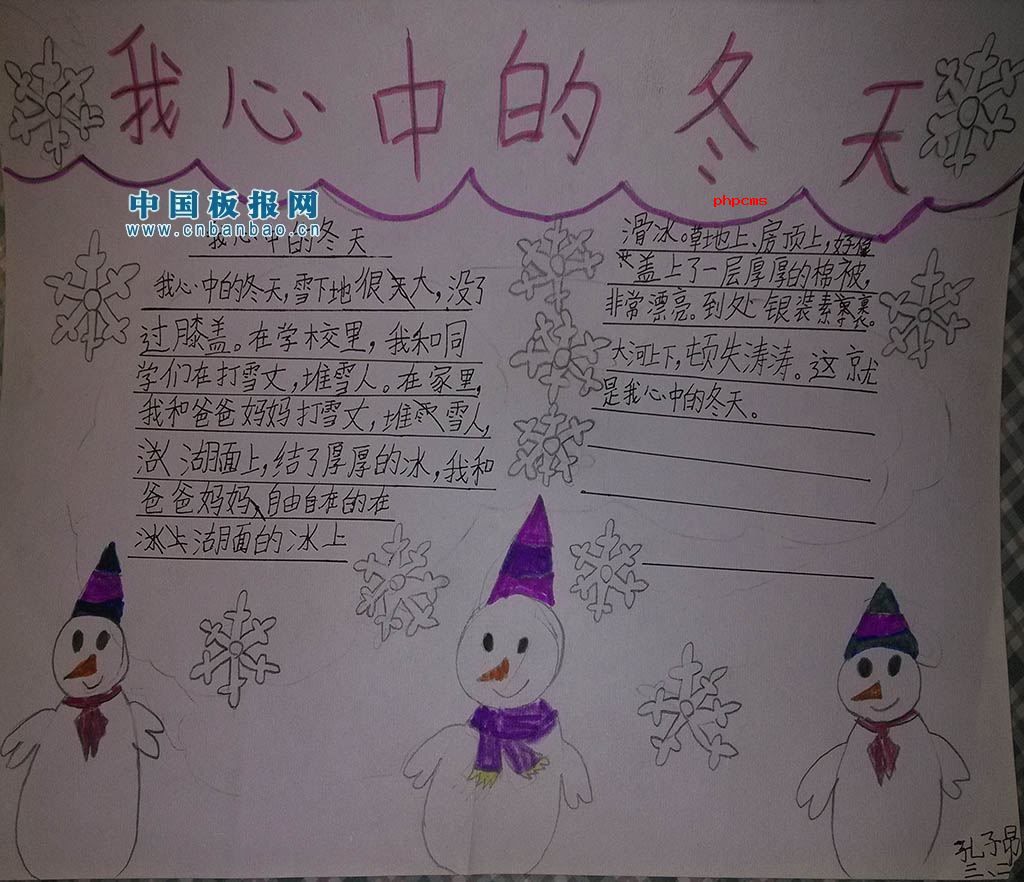 我心中的冬天
中国板报网
www.cnbanbao.cn
phpcms
我心中的冬天
我心中的冬天,雪下地很大,没了
过膝盖。在学校里,我和同
学们在打雪丈,堆雪人。在家里,
我和爸爸妈妈打雪丈,堆雪人,
湖面上,结了厚厚的冰,我和
爸爸妈妈自由自在的在
湖面的冰上
滑冰。草地上、房顶上,好像
盖上了一层厚厚的棉被,
非常漂亮。到处银装素裹。
大河上下,顿失涛涛。这就
是我心中的冬天。
孔子昂
三、二